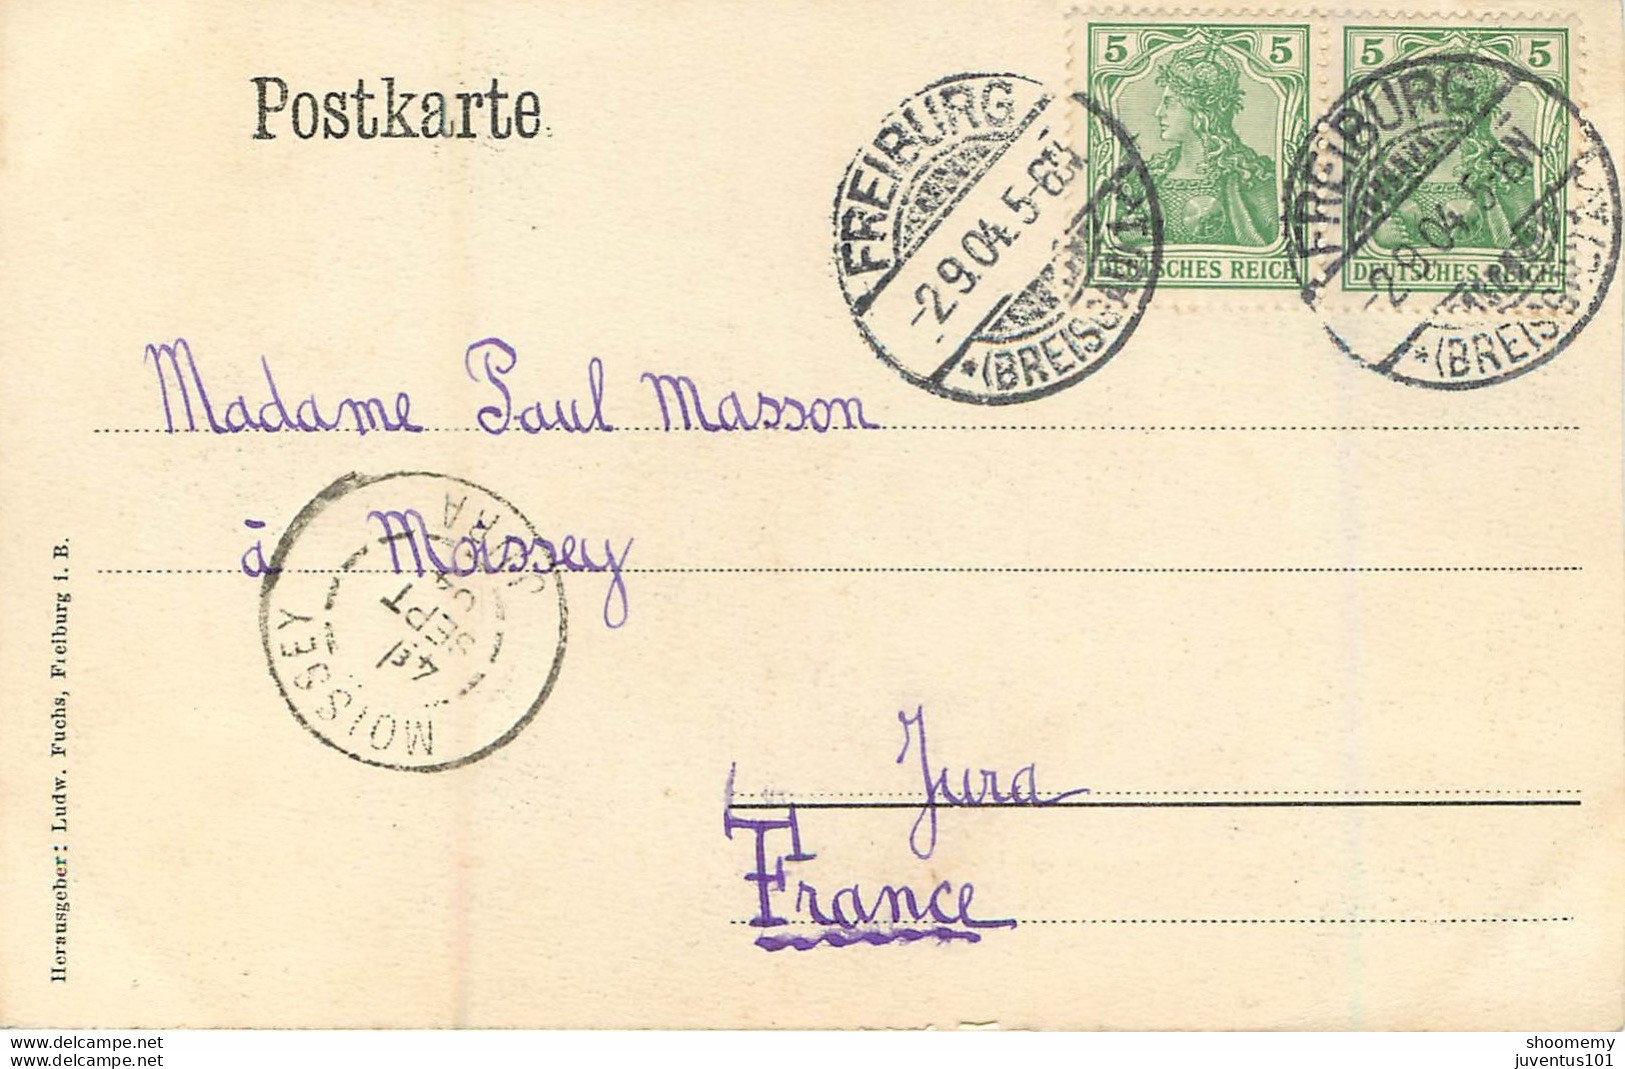 Postkarte
5 5
DEUTSCHES REICH
5 5
DEUTSCHES REICH
FREIBURG
-2.9.04.5-6N
*(BREISGAU)
FREIBURG
-2.9.04.5-6N
*(BREISGAU)
Madame Paul Masson
à Moissey
MOISSEY
JURA
4
SEPT
04
Jura
T
France
Herausgeber: Ludw. Fuchs, Freiburg i. B.
www.delcampe.net
www.delcampe.net
shoomemy
juventus101